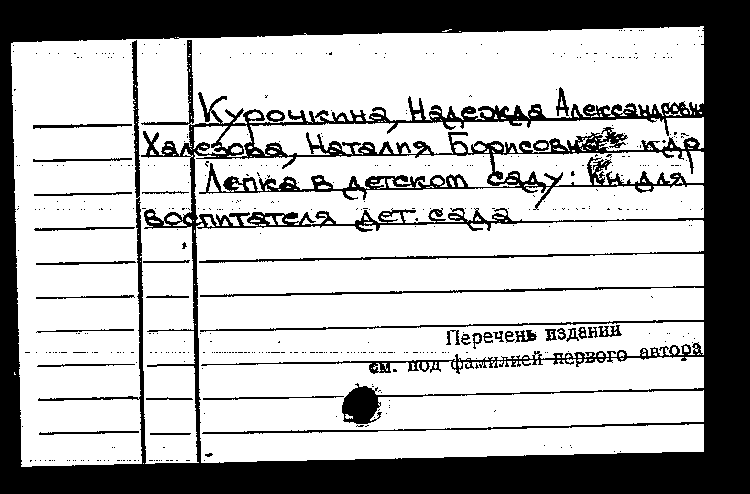 Курочкина, Надежда Александровна
Халезова, Наталия Борисовна и др.
Лепка в детском саду: Кн. для
воспитателя дет. сада
Перечень изданий
см. под фамилией первого автора